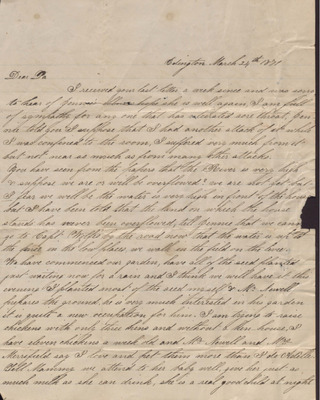 Edington, March 24th 1871
Dear Pa
I received your last letter a week since and was sorry
to hear of illness hope she is well again. I am full
of sympathy for any one that has ulcerated sore throat. I
told you I suppose that I had another attack of it which
I was confined to the room, I suffered very much from it
but not near as much as from many other attacks.
You have seen from the papers that the River is very high
& suppose we are or will be overflowed? we are not yet but
I fear we will be the water is very high in front of the house
but I have been told that the land on which the house
stands has never been overflowed. I tell Pennie that we can't
go to Capt. the road now that the water is up to
the fence in the low places, we walk in the field on the levee.
We have commenced our garden, have all of the seed planted
just waiting now for a rain and I think we will have it this
evening I planted most of the seed myself & Mr Newell
prepares the ground, he is very much interested in his garden
it is quite a new occupation for him. I am trying to raise
chickens with only three hens and without a hen house, I
have eleven chickens a week old and Mr Newell and Mr
Merrifield say I love and pet them more than I do
Gill. Mammy we attend to her baby well, give her just as
much milk as she can drink, she is a real good child at night